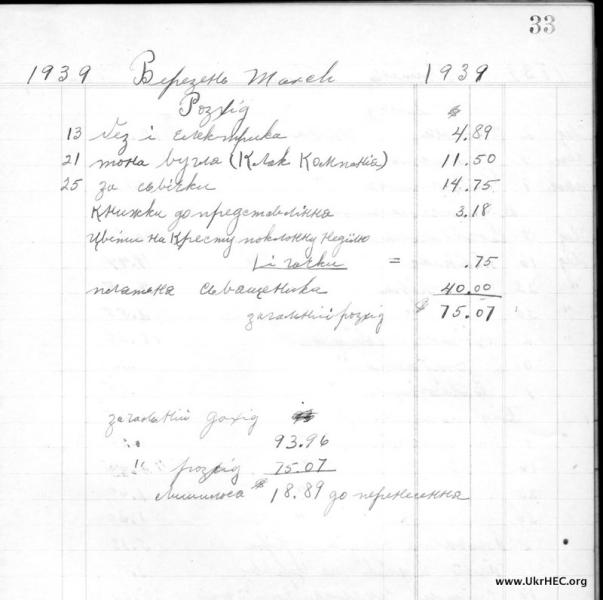 33
1939 Березень March 1939
Розхід $
13 Ґез і електрика 4.89
21 тона вугла (Клак Компанія) 11.50
25 за сьвічки 14.75
Книжки до представління 3.18
Цвіти на Кресту поклонну неділю
і гачки = .75
платня сьвященика 40.00
загальний розхід $ 75.07
загальний дохід
" 93.96
" розхід 75.07
Лишилося $ 18.89 до перенесення
www.UkrHEC.org